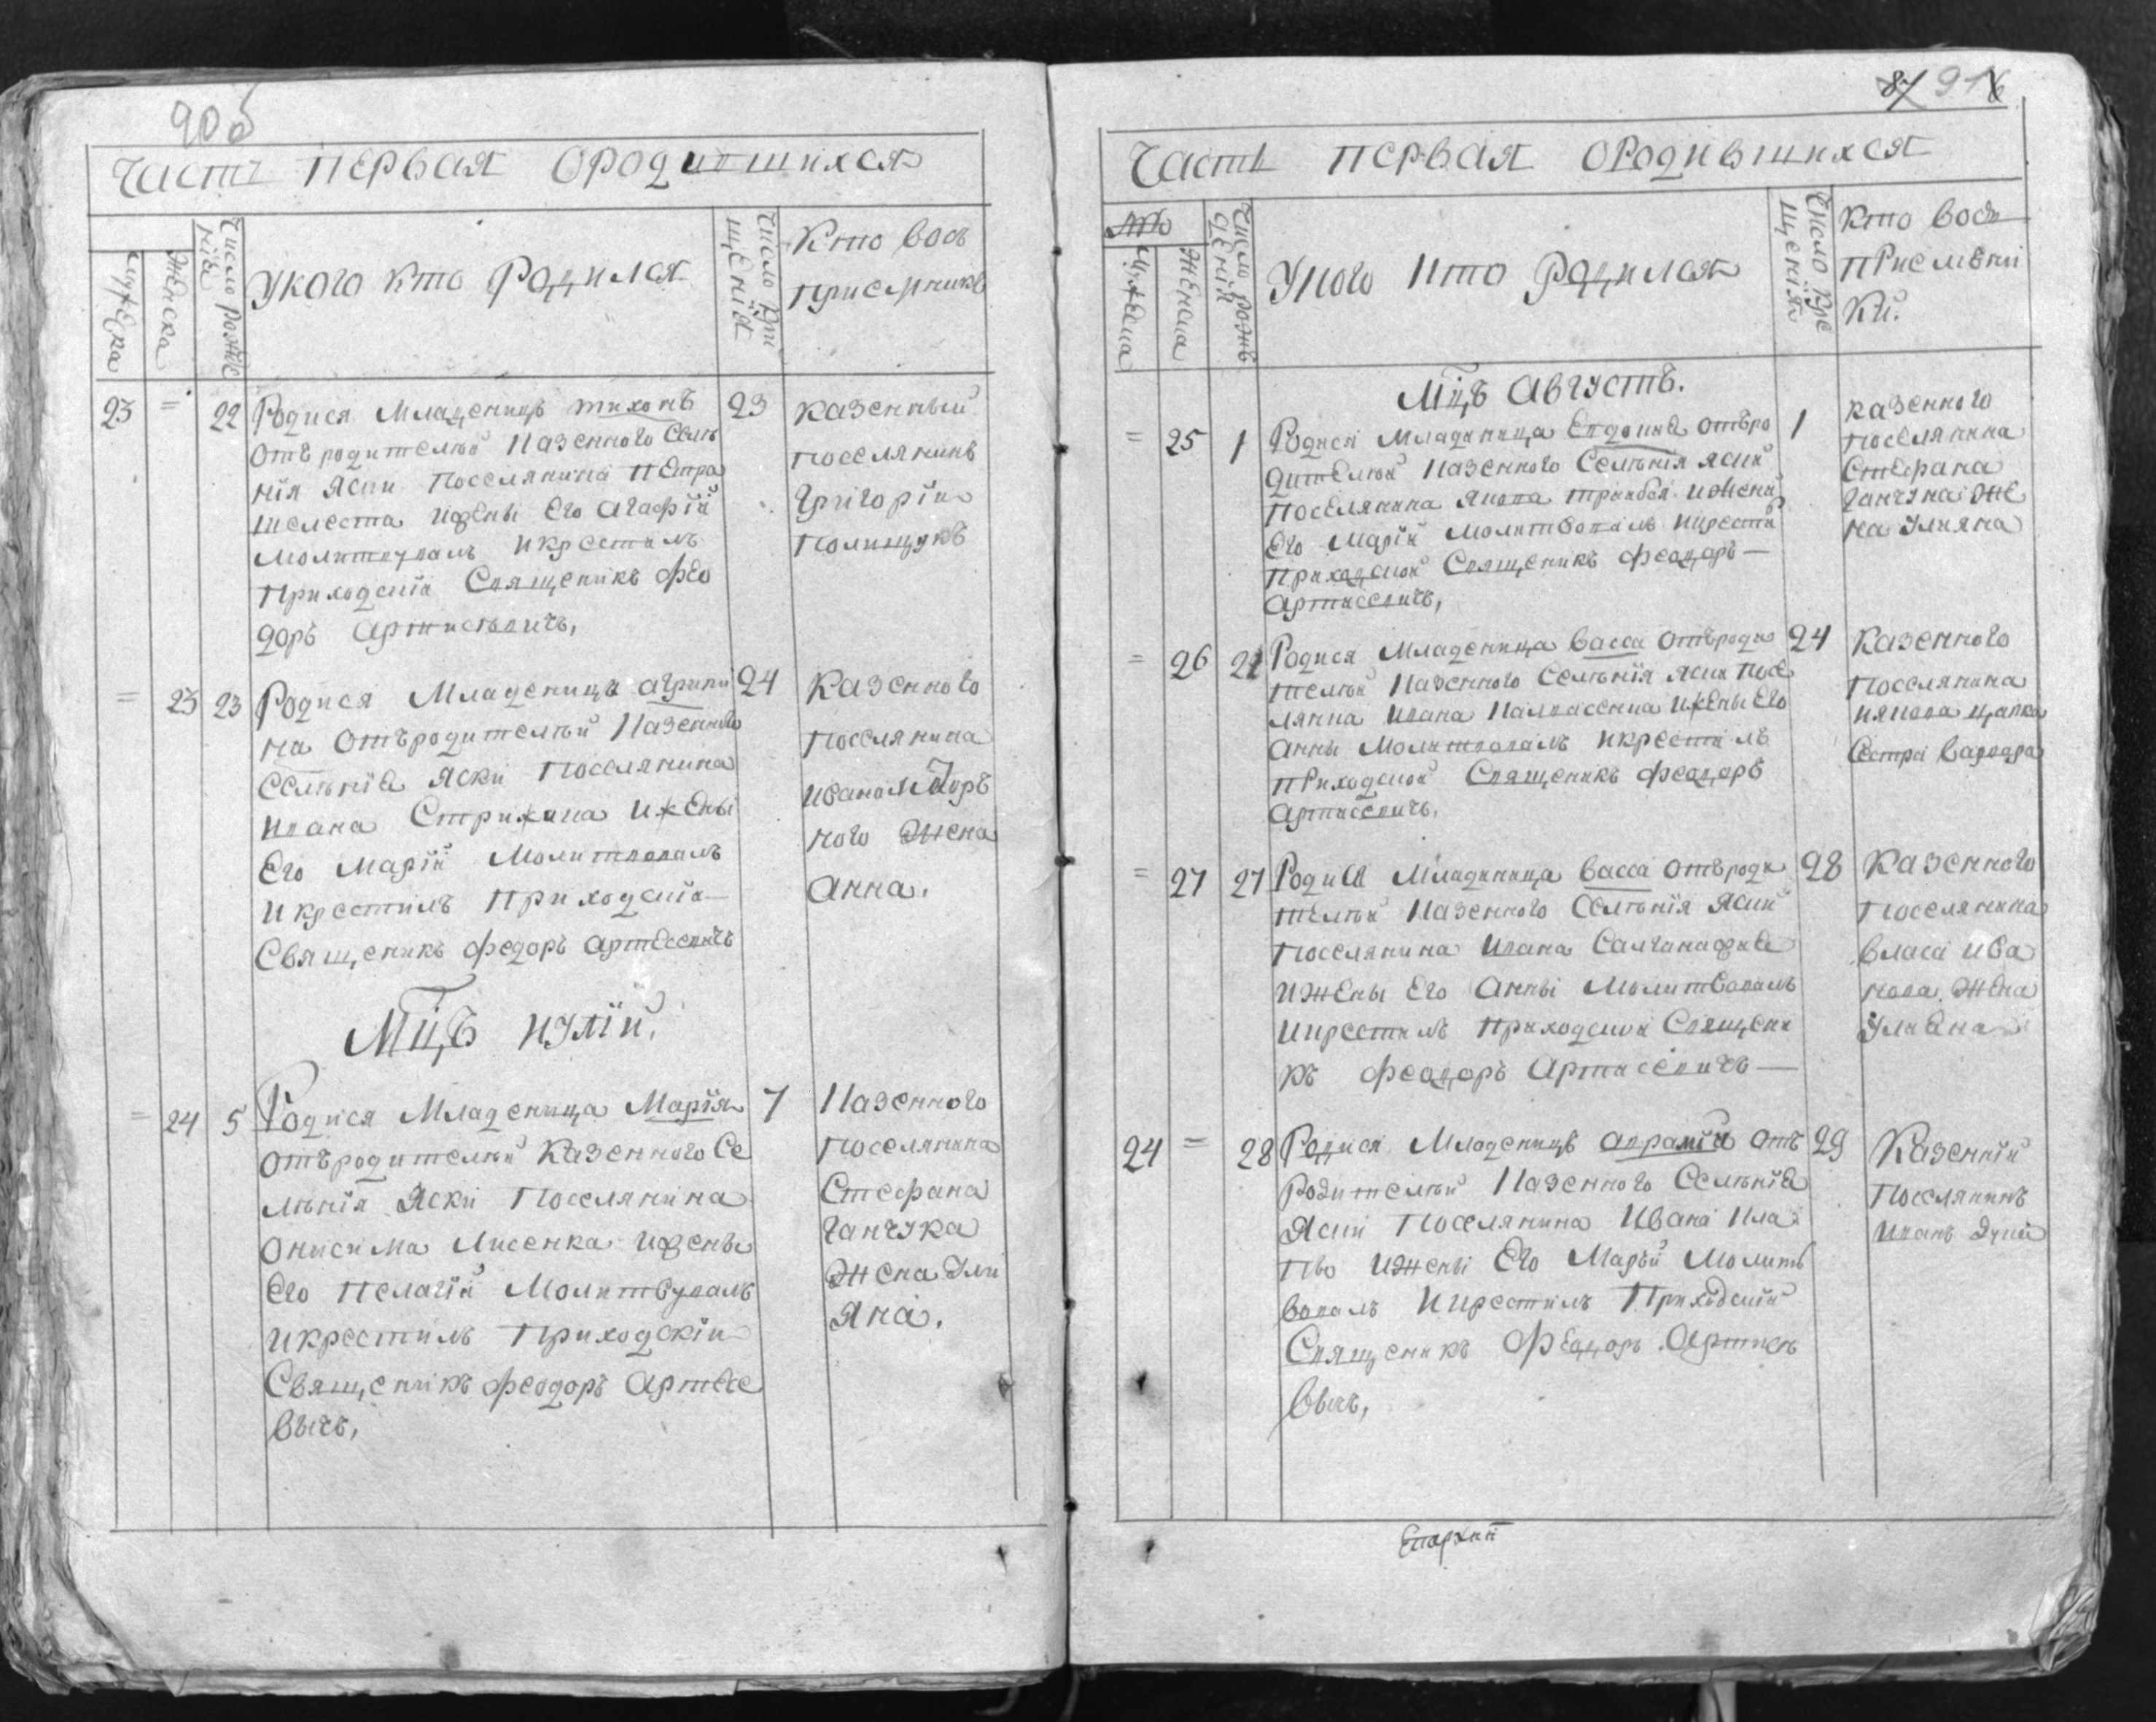 90б
Часть первая ородившихся
Мужеска
Женска
Число рожде
нія
Укого кто Родился
Число кре
щенія
Кто вос
приемникъ
23 = 22 Родися Младенецъ тихонъ 23
отъ родителей Казенного Селѣ
нія Яски Поселянина Петра
шелеста ижены Его Агафіи
Молитвувалъ икрестилъ
Приходскій Священикъ Фео
доръ Артисѣвичъ,
казенный
поселянинъ
Григоріи
Полищукъ
= 23 23 Родися Младеница агрипи 24
на отъродителѣй Казенного
Селѣнія Яски Поселянина
Ивана Стрижака ижены
Его Маріи Молитвовалъ
икрестилъ Приходскіи
Священикъ Федоръ Артесевичъ
Казенного
Поселянина
Ивана
ного Жена
Анна.
Мцъ иулій.
= 24 5 Родися Младеница Марія 7
отъродителѣй Казенного Се
лѣнія Яски Поселянина
Онисима Лисенка ижены
Его Пелагіи Молитвувалъ
икрестилъ Приходскіи
Священикъ Феодоръ Артесе
вычъ,
Казенного
Поселянина
Стефана
ганчука
Жена Ули
яна.
87 91
Часть первая ородившихся
Мужеска
Женска
Число рожд
денія
Укого кто Родился
Число кре
щенія
Кто вос
приемни
ки.
Мцъ Августъ.
= 25 1 Родися Младеница Евдокиа отъро 1
дителѣй Казенного Селѣнія Яски
Поселянина Якова ижены
Его Маріи Молитвовалъ икрести
Приходской Священикъ Феодоръ
Артисевичъ,
казенного
поселянина
Стефана
Ганчука же
на Уляна
= 26 21 Родися Младеница Васса отъроди 24
телѣй Казенного Селѣнія Яски Посе
лянина Ивана ижены Его
Анны Молитвовалъ икрестилъ
Приходской Священикъ Феодоръ
Артисевичъ.
Казенного
Поселянина
Цапка
Сестра Варвара
= 27 27 Родися Младеница Васса отъроди 28
телѣй Казенного Селѣнія Яски
Поселянина Ивана
ижены Его Анны Молитвовалъ
икрестилъ Приходской Священи
къ Феодоръ Артисевичъ
Казенного
Поселянина
Власа Ива
нова Жена
Улиана
24 = 28 Родися Младенецъ Аврамій отъ 29
Родителѣй Казенного Селѣнія
Яски Поселянина Ивана
ижены Его Маріи Молитв
вовалъ икрестилъ Приходскій
Священикъ Феодоръ Артисѣ
вычъ,
Казенній
Поселянинъ
Иванъ
Епархии